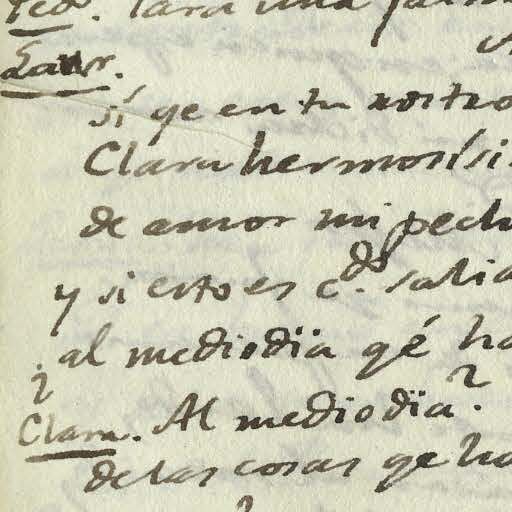 Teo. Para una
Laur.
si qe en tu rostro
Clara hermosísi
de amor mi pech
y si esto es cdo. salia
al mediodia qé ha
¿
Clara. Al mediodia?
de las cosas qe ha